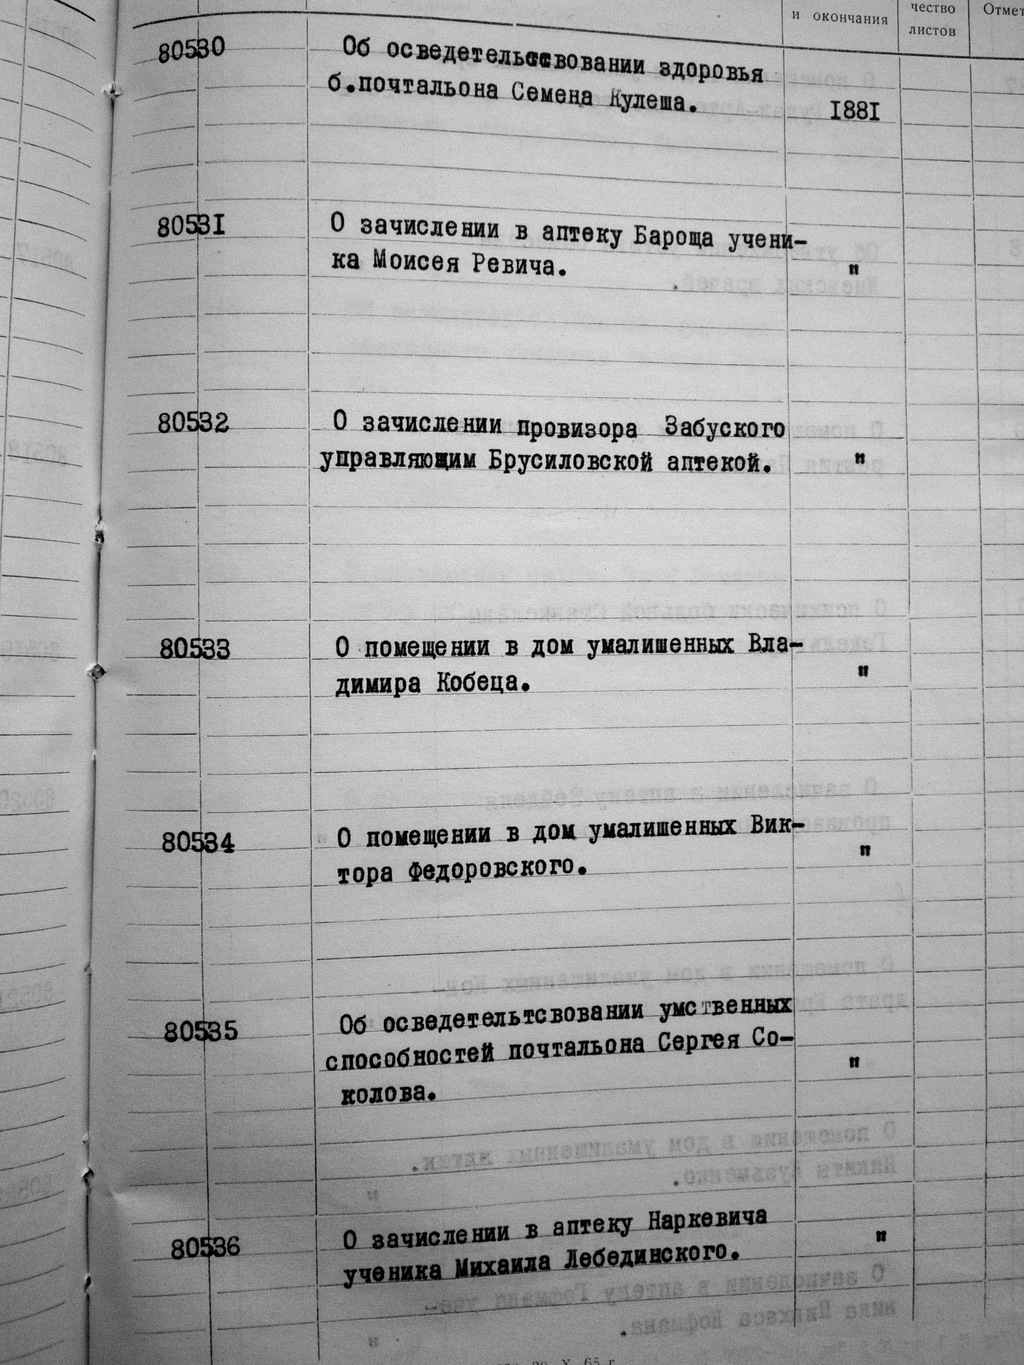 и окончания
чество
листов
Отмет
80530
Об осведетельсвовании здоровья
б.почтальона Семена Кулеша.
I88I
8053I
О зачислении в аптеку Бароща учени-
ка Моисея Ревича.
"
80532
О зачислении провизора Забуского
управляющим Брусиловской аптекой.
"
80533
О помещении в дом умалишенных Вла-
димира Кобеца.
"
80534
О помещении в дом умалишенных Вик-
тора Федоровского.
"
80535
Об осведетельтсвовании умственных
способностей почтальона Сергея Со-
колова.
"
80536
О зачислении в аптеку Наркевича
ученика Михаила Лебединского.
"